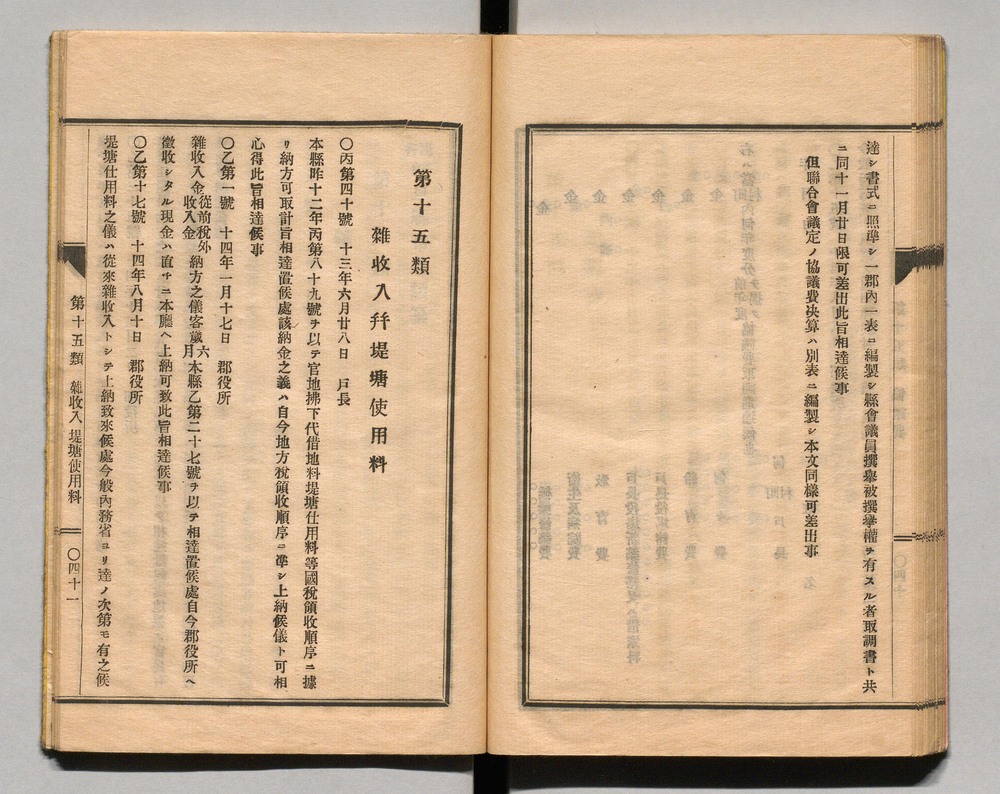 達シ書式ニ照準シ一郡內一表ニ編製シ縣會議員撰擧被撰擧權ヲ有スル者取調書ト共
ニ同十一月廿日限可差出此旨相達候事
但聯合會議定ノ協議費决算ハ別表ニ編製シ本文同樣可差出事
第十五類
雜收入幷堤塘使用料
〇丙第四十號 十三年六月廿八日 戶長
本縣昨十二年丙第八十九號ヲ以テ官地拂下代借地料堤塘仕用料等國稅領收順序ニ據
リ納方可取計旨相達置候處該納金之義ハ自今地方稅領收順序ニ準シ上納候儀ト可相
心得此旨相達候事
〇乙第一號 十四年一月十七日 郡役所
雜收入金從前稅外收入金納方之儀客歲六月本縣乙第二十七號ヲ以テ相達置候處自今郡役所ヘ
徵收シタル現金ハ直チニ本廳ヘ上納可致此旨相達候事
〇乙第十七號 十四年八月十日 郡役所
堤塘仕用料之儀ハ從來雜收入トシテ上納致來候處今般內務省ヨリ達ノ次第モ有之候
第十五類 雜收入 堤塘使用料
〇四十一